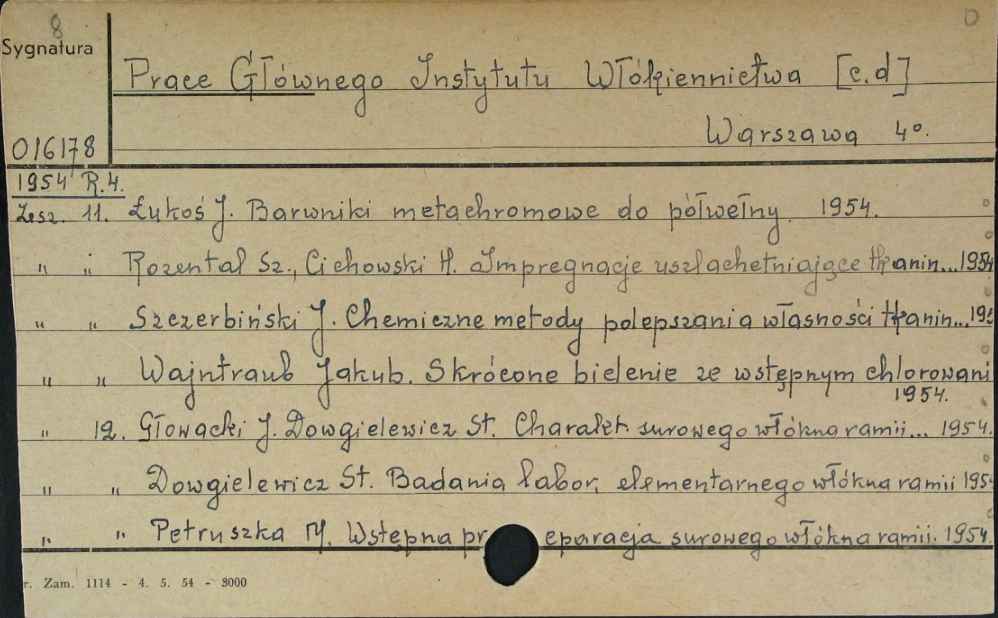 8
D
Sygnatura
Prace Głównego Instytutu Włókiennictwa [c.d]
Warszawa 4°.
016178
1954 R.4.
Zesz. 11. Łukoś J. Barwniki metachromowe do półwełny. 1954.
" " Rozental Sz., Cichowski H. Impregnacje uszlachetniające tkanin...1954
" " Szczerbiński J. Chemiczne metody polepszania własności tkanin...195
" " Wajntraub Jakub. Skrócone bielenie ze wstępnym chlorowani
1954.
" 12. Głowacki J. Dowgielewicz St. Charakt. surowego włókna ramii... 1954.
" " Dowgielewicz St. Badania labor. elementarnego włókna ramii 195
" " Petruszka M. Wstępna preparacja surowego włókna ramii. 1954.
r. Zam. 1114 - 4. 5. 54 - 8000